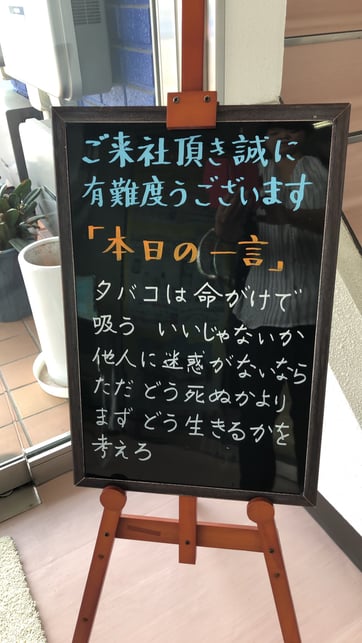 ご来社頂き誠に
有難度うございます
「本日の一言」
タバコは命がけで
吸う いいじゃないか
他人に迷惑がないなら
ただ どう死ぬかより
まず どう生きるかを
考えろ